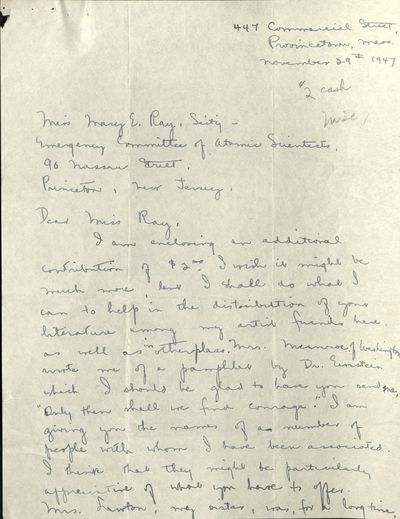 447 Commercial Street,
Provincetown, Mass.
November 29th 1947
$2 cash
misc
Miss Mary E. Ray, Sect'y -
Emergency Committee of Atomic Scientists,
90 Nassau Street,
Princeton, New Jersey.
Dear Miss Ray,
I am enclosing an additional
contribution of $2.00 I wish it might be
much more, but I shall do what I
can to help in the distribution of your
literature among my artist friends here
as well as in other places. Mrs. of Washington
wrote me of a pamphlet by Dr. Einstein
which I should be glad to have you send me,
"Only then shall we find courage." I am
giving you the names of a number of
people with whom I have been associated.
I think that they might be particularly
appreciative of what you have to offer.
Mrs. Lawton, my sister, was, for a long time,